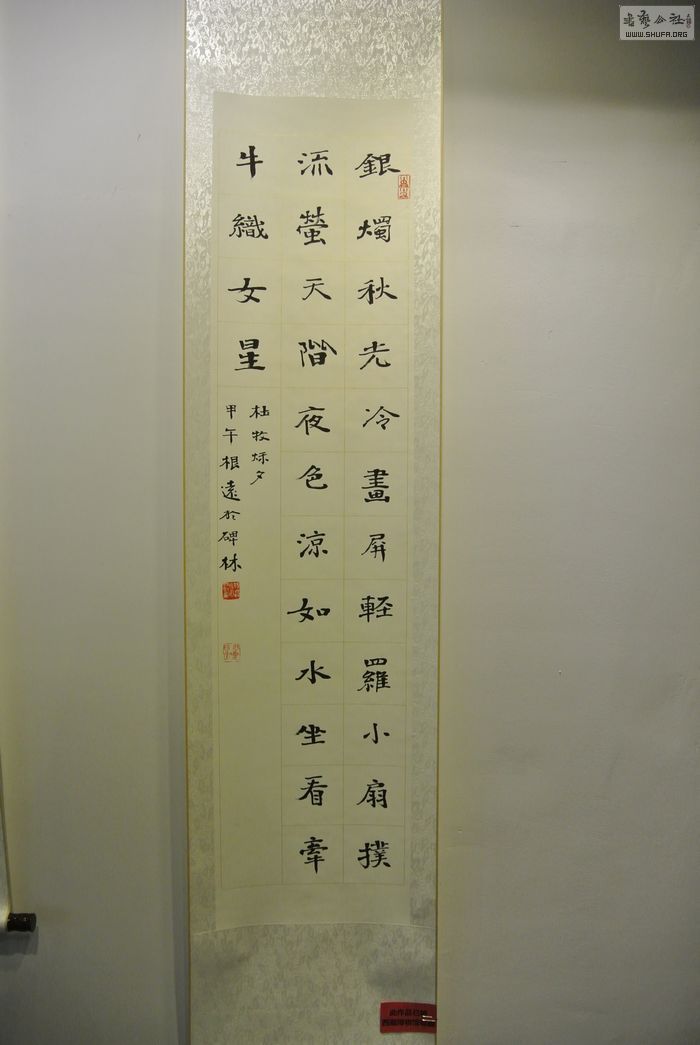 銀燭秋光冷畫屏軽羅小扇撲
流螢天階夜色涼如水坐看牽
牛織女星
杜牧烁夕
甲午根遠於碑林
WWW.SHUFA.ORG
此作品已被